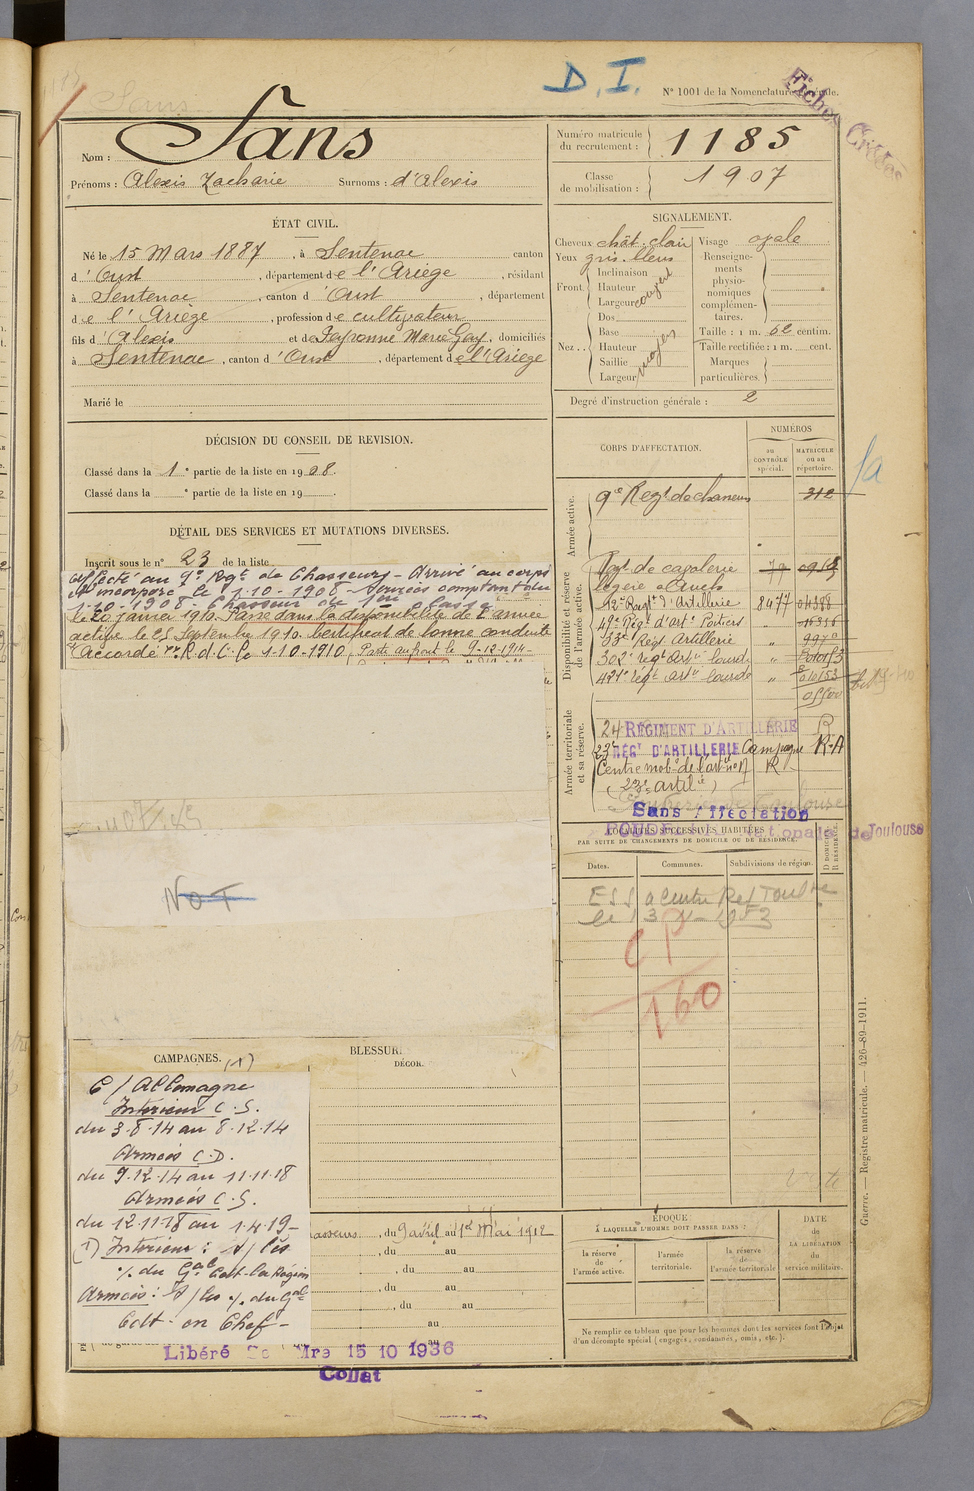 D. I.
N° 1001 de la Nomenclature générale.
Fiches
Sans
Nom : Sans
Prénoms : Alexis Zacharie Surnoms : d'Alexis
Numéro matricule du recrutement : 1185
Classe de mobilisation : 1907
ÉTAT CIVIL.
Né le 15 Mars 1887, à Sentenac canton
d'Oust, département de l'Ariège, résidant
à Sentenac, canton d'Oust, département
de l'Ariège, profession de cultivateur
fils d'Alexis et de Peyronne Marie Gay, domiciliés
à Sentenac, canton d'Oust, département de l'Ariège
Marié le
SIGNALEMENT.
Cheveux chât. clair
Yeux gris. bleus
Front. Inclinaison
Hauteur
Largeur
moyen
Nez.. Dos
Base
Hauteur
Saillie
Largeur
moyen
Visage ovale
Renseignements physionomiques complémentaires.
Taille : 1 m. 62 centim.
Taille rectifiée : 1 m. cent.
Marques particulières.
Degré d'instruction générale : 2
DÉCISION DU CONSEIL DE REVISION.
Classé dans la 1e partie de la liste en 1908.
Classé dans la e partie de la liste en 19
DÉTAIL DES SERVICES ET MUTATIONS DIVERSES.
Inscrit sous le n° 23 de la liste
Affecté au 9e Rgt de Chasseurs - Arrivé au corps
et incorporé le 1-10-1908 - Services comptant du
1-10-1908. Chasseur de 1ère classe
le 20 janvier 1910. Passé dans la disponibilité de l'armée
active le 25 Septembre 1910. Certificat de bonne conduite
Accordé. R.d.C. le 1-10-1910. Parti au front le 9-12-1914-
NoT
CORPS D'AFFECTATION.
NUMÉROS
au CONTRÔLE spécial.
MATRICULE ou au répertoire.
Armée active.
9e Regt de chasseurs 312
Disponibilité et réserve de l'armée active.
Regt de cavalerie
légère Auch
12e Regt d'Artillerie 8477 04388
49e Rég. d'art. Poitiers "
33e Régt Artillerie " 9970
302e régt artie lourde "
421e régt artie lourde "
Armée territoriale et sa réserve.
24 RÉGIMENT D'ARTILLERIE R
23e RÉGt D'ARTILLERIE Campagne R.A
Centre mob. de l'art. n° 17 R
(23e artie)
Sans Affectation
POUDRERIE Nationale de Toulouse
LOCALITÉS SUCCESSIVES HABITÉES
PAR SUITE DE CHANGEMENTS DE DOMICILE OU DE RÉSIDENCE.
Dates. Communes. Subdivisions de région. D DOMICILE. R RÉSIDENCE.
CP
160
CAMPAGNES. (1)
C/ Allemagne
Intérieur C.S.
du 3-8-14 au 8-12-14
Armées C.D.
du 9-12-14 au 11-11-18
Armées C.S.
du 12-11-18 au 1-4-19-
(1) Intérieur : s/ les
% du Gal Cdt. la Région
Armées : s/ les % du Gal
Cdt. en Chef -
BLESSUR
DÉCOR.
Chasseurs, du 9 avril au 1er Mai 1912
, du au
, du au
, du au
, du au
au
au
ÉPOQUE
À LAQUELLE L'HOMME DOIT PASSER DANS :
la réserve de l'armée active.
l'armée territoriale.
la réserve de l'armée territoriale
DATE de LA LIBÉRATION du service militaire.
Ne remplir ce tableau que pour les hommes dont les services font l'objet
d'un décompte spécial (engagés, condamnés, omis, etc.).
Libéré 15 10 1936
Collat
Guerre. — Registre matricule. — 426-89-1911.